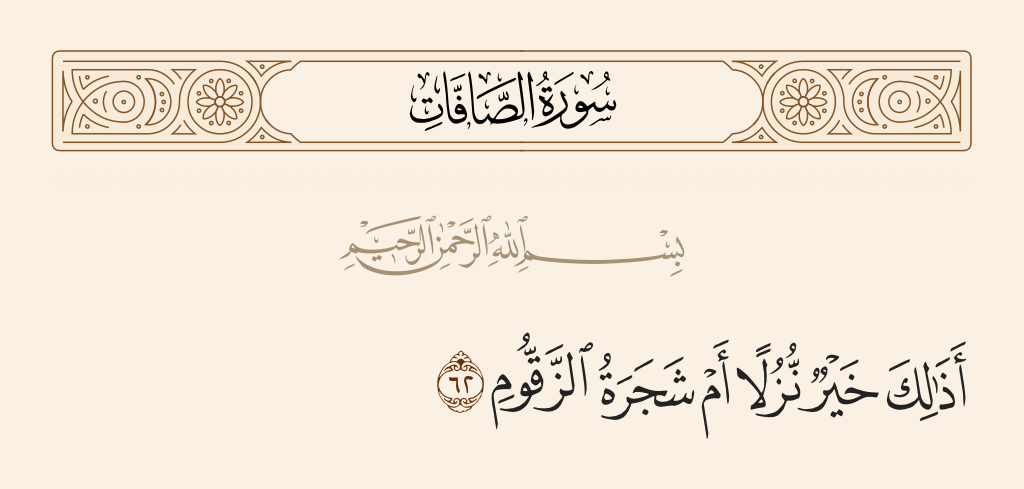 سُورَةُ الصَّافَّاتِ
بِسْمِ ٱللَّهِ ٱلرَّحْمَٰنِ ٱلرَّحِيمِ
أَذَٰلِكَ خَيْرٌ نُّزُلًا أَمْ شَجَرَةُ ٱلزَّقُّومِ ٦٢